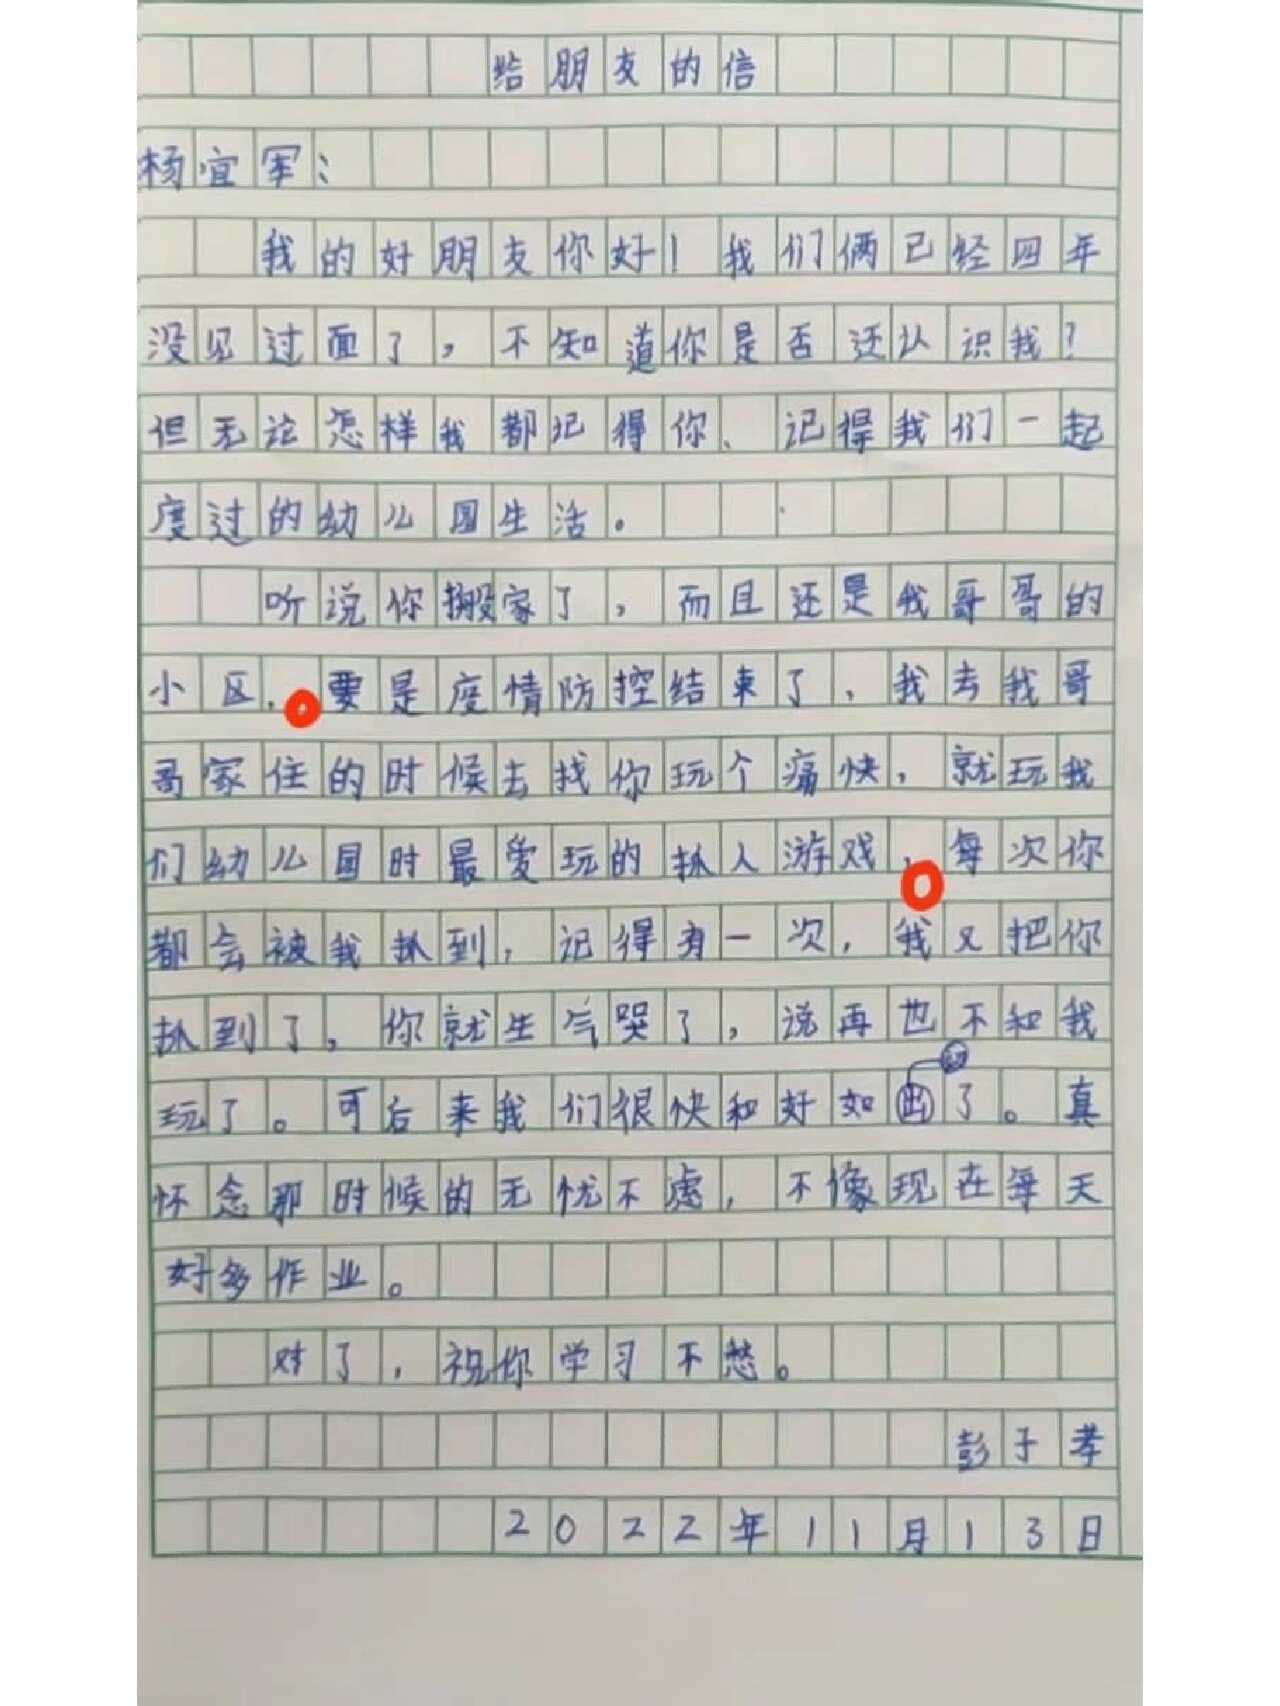 给朋友的信
杨宜军：
我的好朋友你好！我们俩已经四年
没见过面了，不知道你是否还认识我？
但无论怎样我都记得你、记得我们一起
度过的幼儿园生活。
听说你搬家了，而且还是我哥哥的
小区。要是疫情防控结束了，我去我哥
哥家住的时候去找你玩个痛快，就玩我
们幼儿园时最爱玩的抓人游戏。每次你
都会被我抓到，记得有一次，我又把你
抓到了，你就生气哭了，说再也不和我
玩了。可后来我们很快和好如初了。真
怀念那时候的无忧不虑，不像现在每天
好多作业。
对了，祝你学习不愁。
彭子孝
2022年11月13日